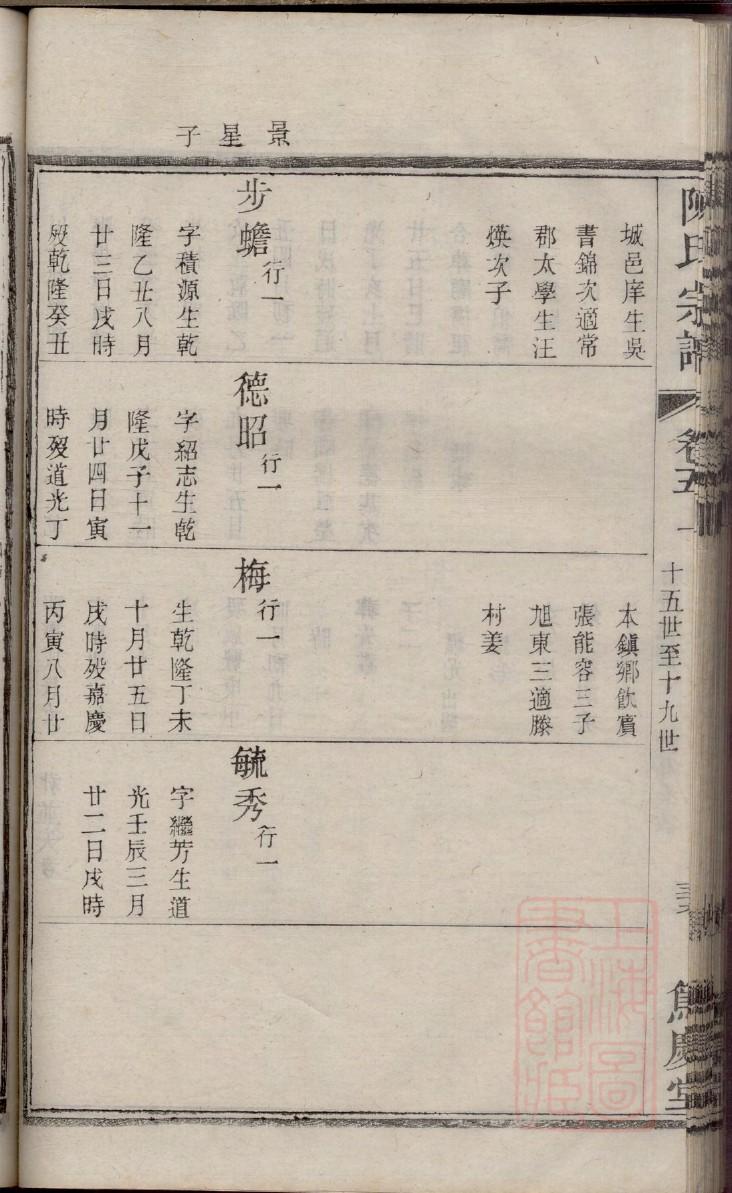 陳氏宗譜
卷五
十五世至十九世
慶堂
城邑庠生吳
書錦次適常
郡太學生汪
煐次子
景星子
步蟾行一
字積源生乾
隆乙丑八月
廿三日戌時
歿乾隆癸丑
德昭行一
字紹志生乾
隆戊子十一
月廿四日寅
時歿道光丁
本鎮鄉飲賓
張能容三子
旭東三適滕
村姜
梅行一
生乾隆丁未
十月廿五日
戌時歿嘉慶
丙寅八月廿
毓秀行一
字繼芳生道
光壬辰三月
廿二日戌時
上海圖書館藏